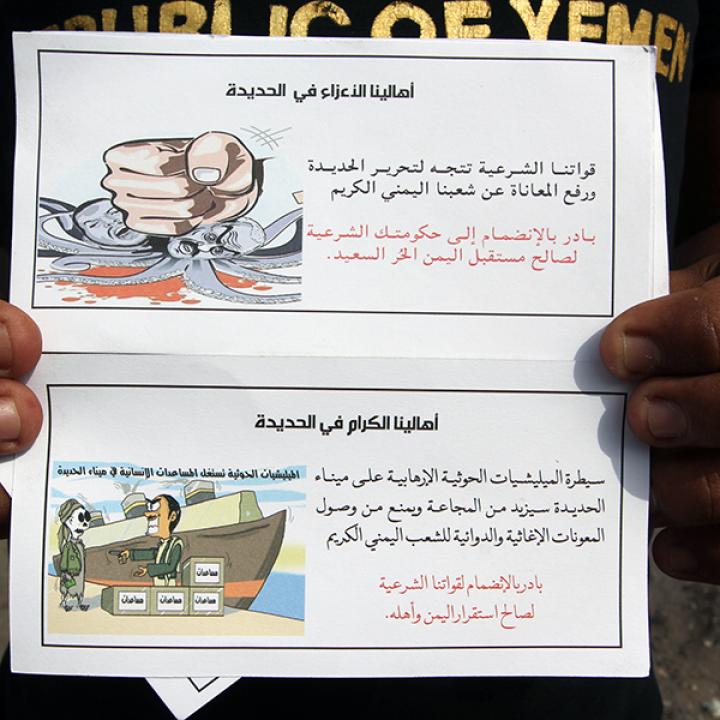 REPUBLIC OF YEMEN
أهالينا الأعزاء في الحديدة
قواتنا الشرعية تتجه لتحرير الحديدة
ورفع المعاناة عن شعبنا اليمني الكريم
بادر بالإنضمام إلى حكومتك الشرعية
لصالح مستقبل اليمن الحُر السعيد.
أهالينا الكرام في الحديدة
المليشيات الحوثية تستغل المساعدات الإنسانية في ميناء الحديدة
سيطرة الميليشيات الحوثية الإرهابية على ميناء
الحديدة سيزيد من المجاعة ويمنع من وصول
المعونات الإغاثية والدوائية للشعب اليمني الكريم
مساعدات
مساعدات مساعدات مساعدات
بادر بالإنضمام لقواتنا الشرعية
لصالح استقرار اليمن وأهله.